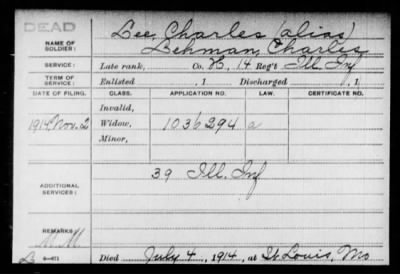 DEAD
NAME OF SOLDIER: Lee, Charles (alias)
Lehman, Charles
SERVICE: Late rank, Co. H, 14 Reg't Ill. Inf
TERM OF SERVICE: Enlisted , 1 Discharged , 1
DATE OF FILING. CLASS. APPLICATION NO. LAW. CERTIFICATE NO.
Invalid,
1914 Nov. 2 Widow, 1036294 a
Minor,
ADDITIONAL SERVICES: 39 Ill. Inf
REMARKS:
Died July 4, 1914, at St Louis, Mo